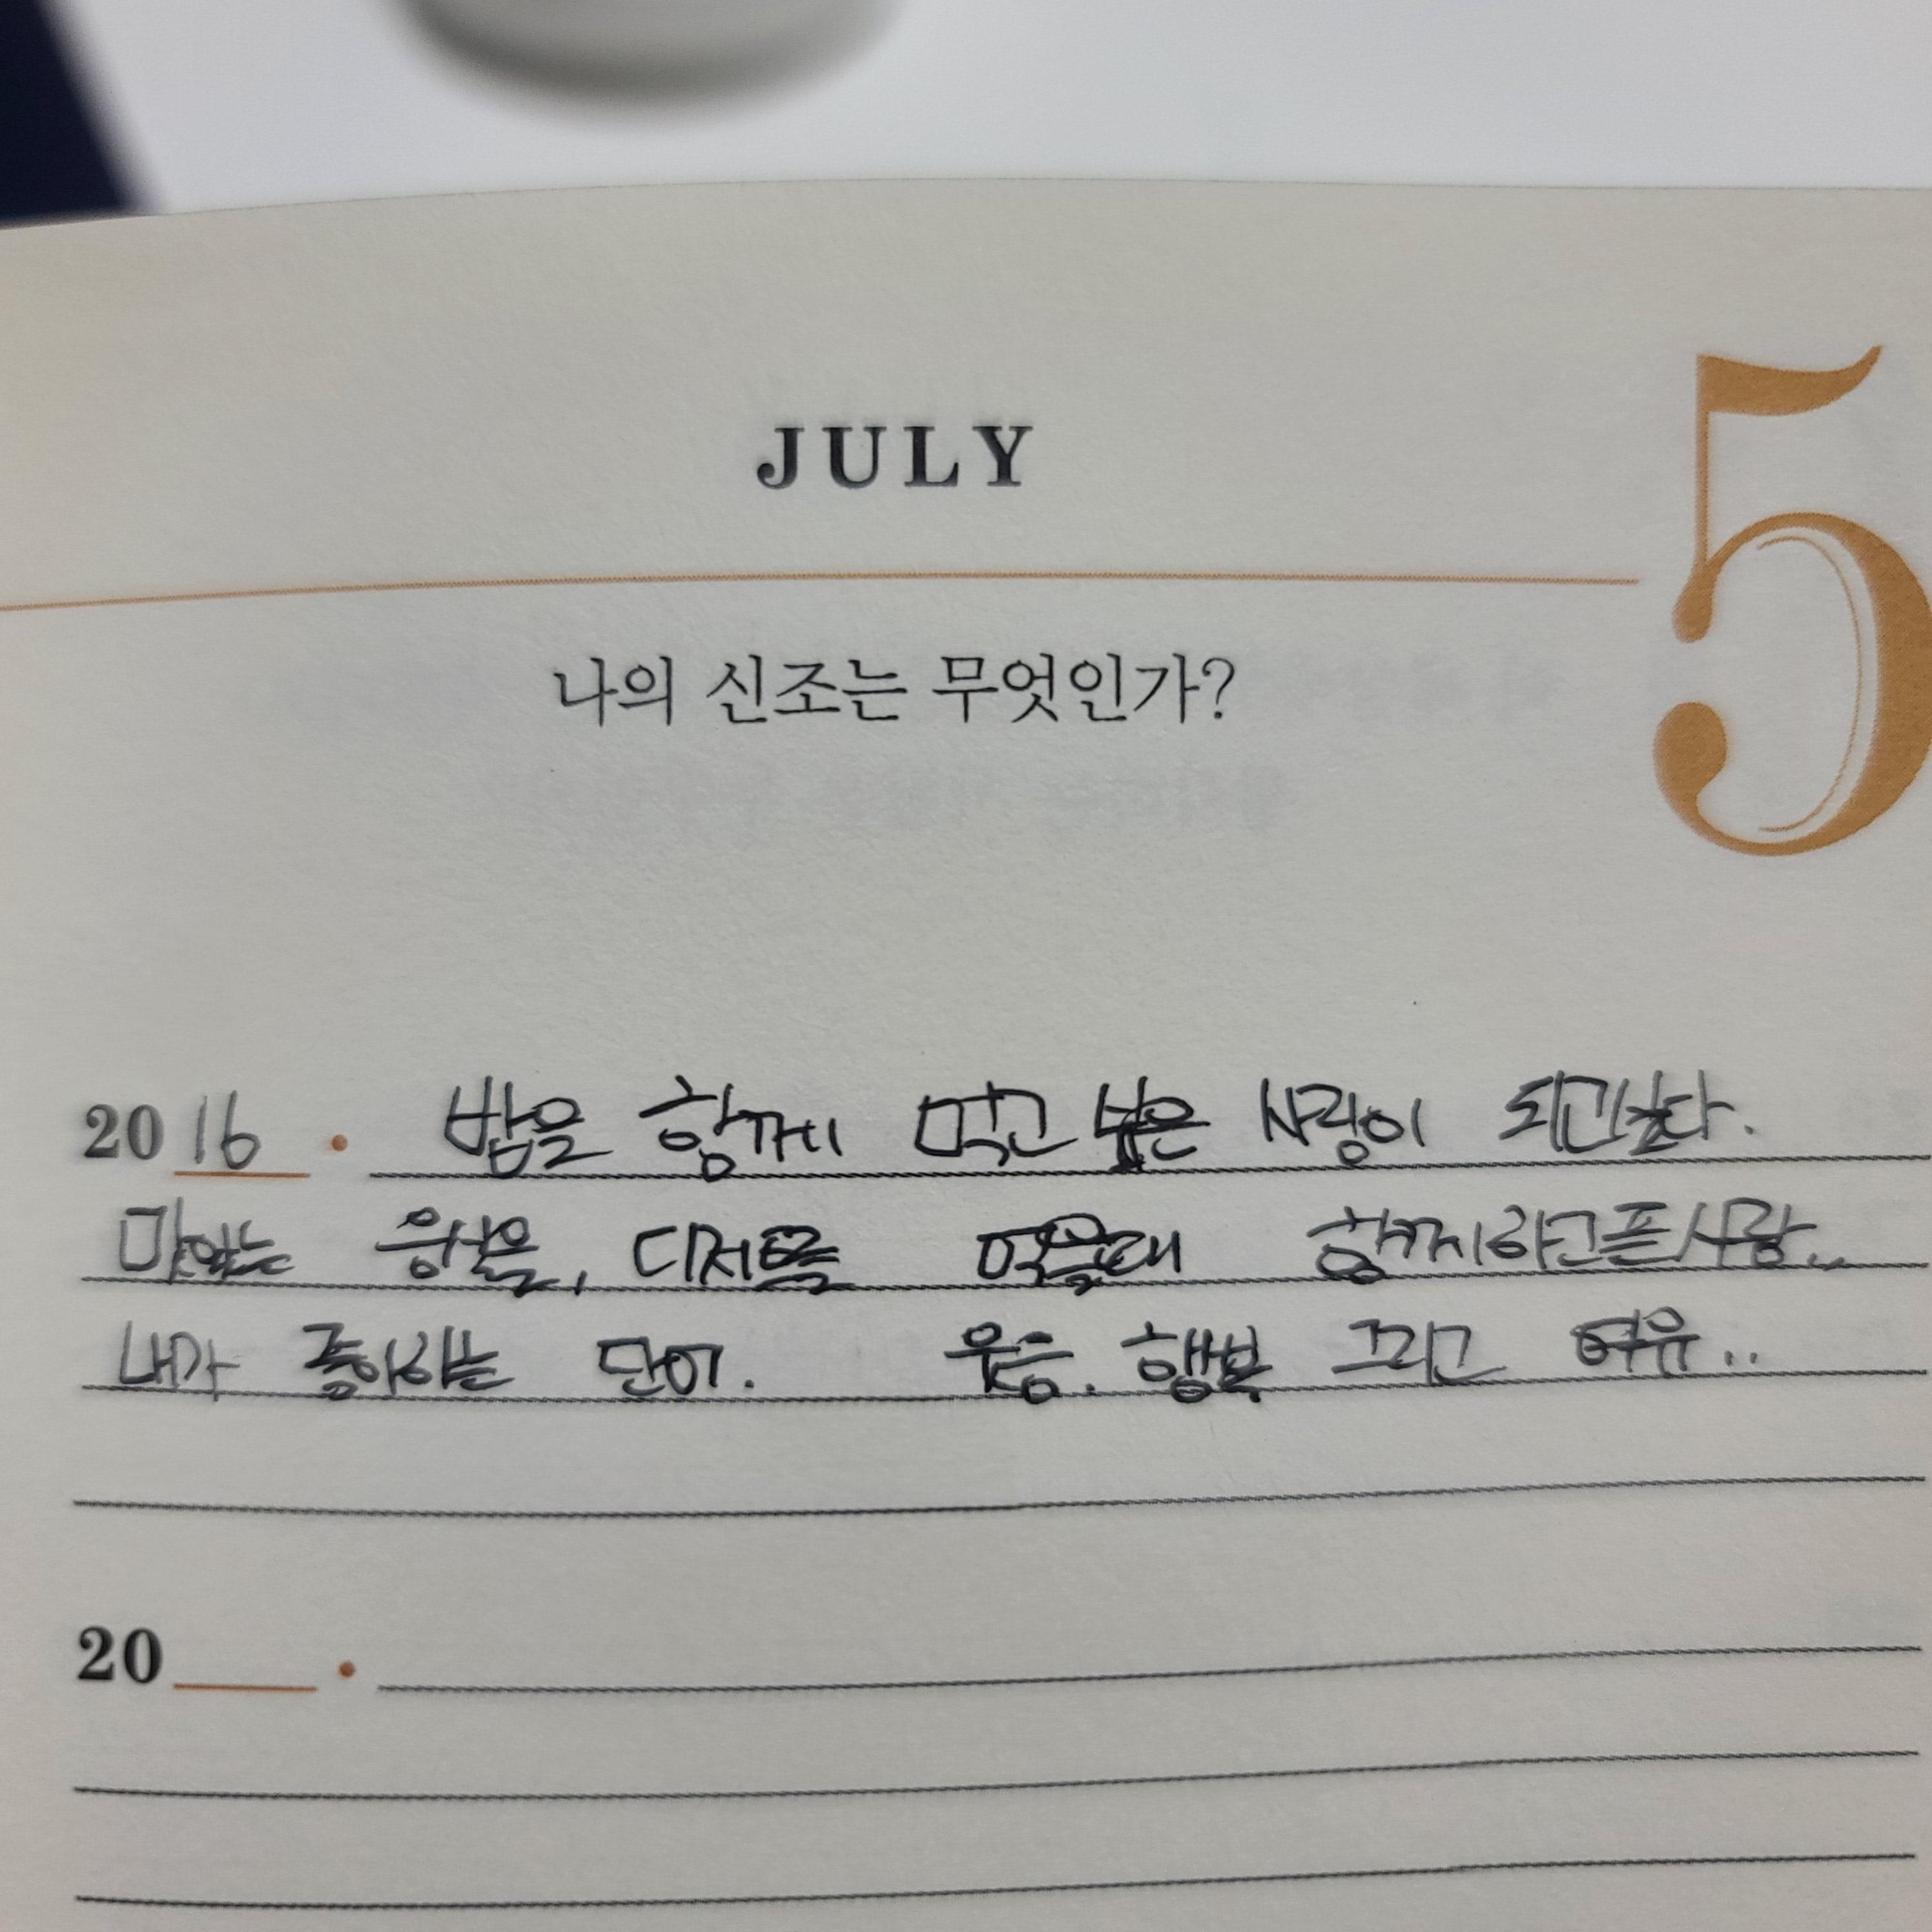 JULY
5
나의 신조는 무엇인가?
2016 • 밥을 함께 먹고 싶은 사람이 되고싶다.
맛있는 음식을, 디저트를 먹을때 함께하고픈사람..
내가 좋아하는 단어. 웃음. 행복 그리고 여유..
20 •